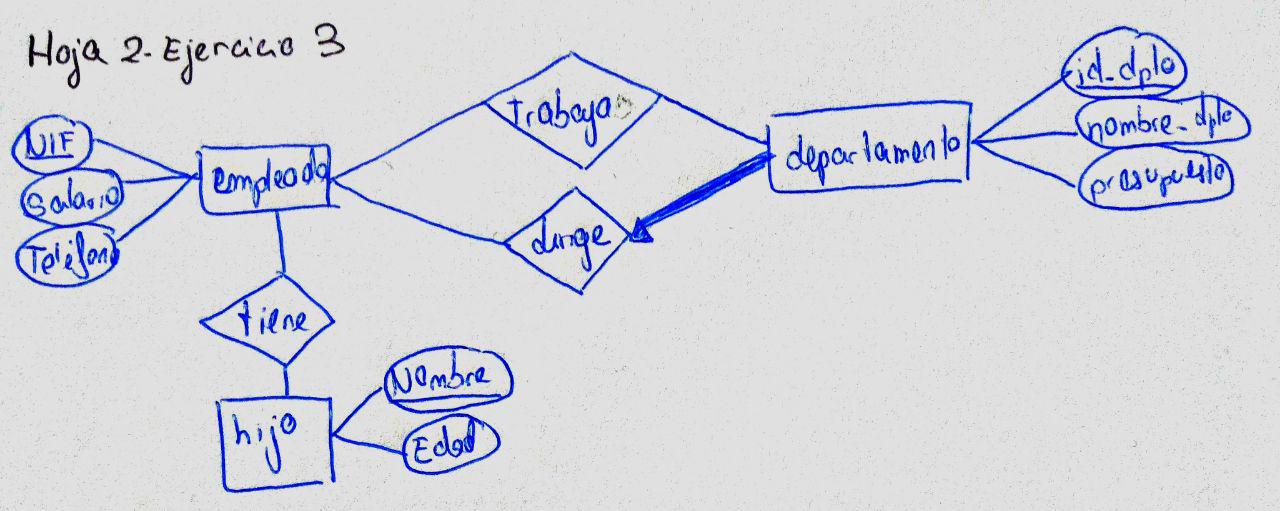 Hoja 2- Ejercicio 3
NIF
Salario
Teléfono
empleado
trabaja
dirige
departamento
id_dpto
nombre_dpto
presupuesto
tiene
hijo
Nombre
Edad